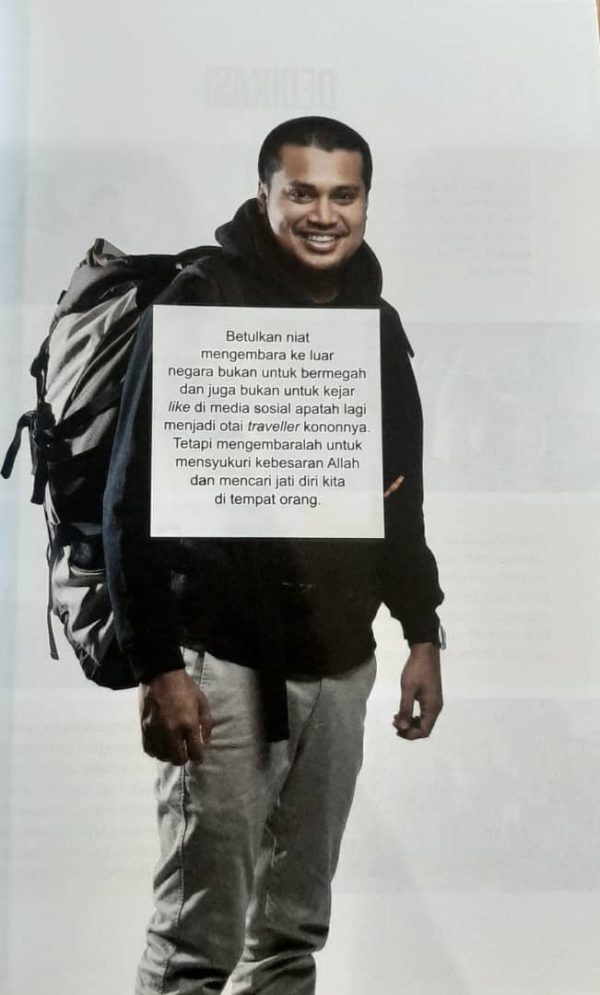 DEDIKASI
Betulkan niat
mengembara ke luar
negara bukan untuk bermegah
dan juga bukan untuk kejar
like di media sosial apatah lagi
menjadi otai traveller kononnya.
Tetapi mengembaralah untuk
mensyukuri kebesaran Allah
dan mencari jati diri kita
di tempat orang.